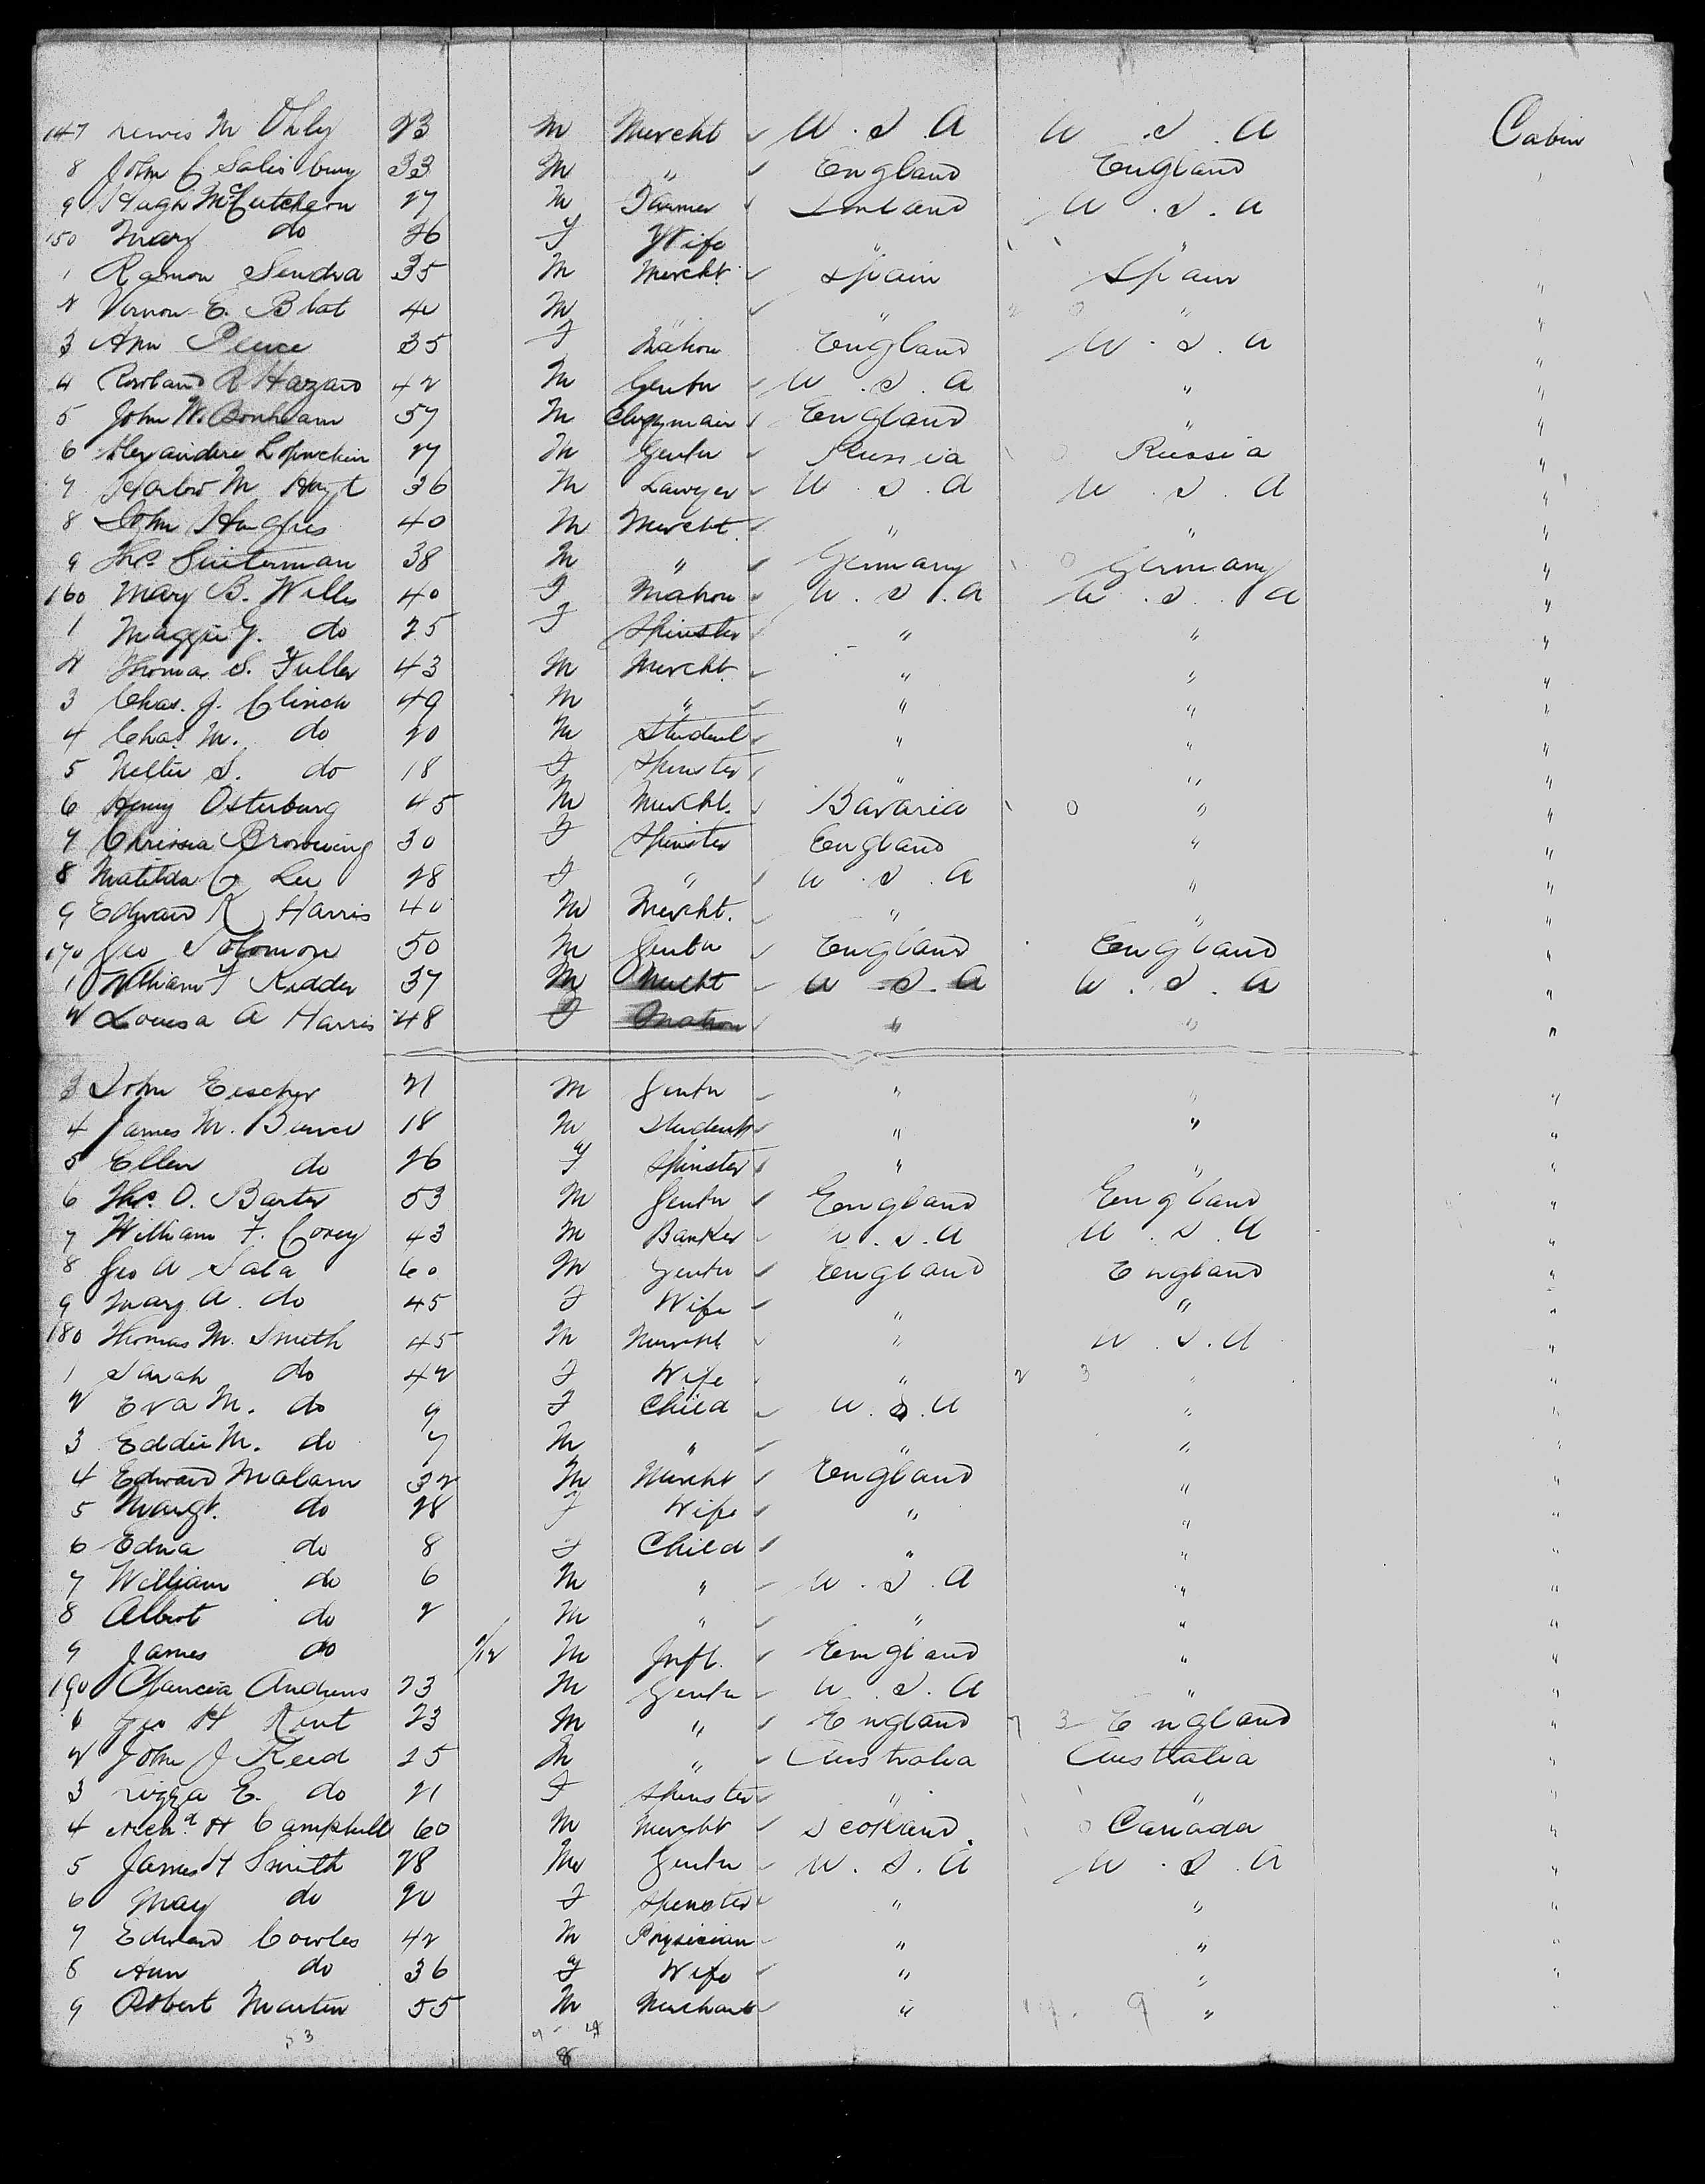 147 Lewis M Ohly 23 M Mercht U.S.A U.S.A Cabin
8 John C Salisbury 33 M " England England "
9 Hugh McCutcheon 27 M Farmer U.S.A
150 Mary do 26 F Wife " "
1 Ramon Sendra 35 M Mercht Spain Spain "
2 Vernon E. Blat 40 M " " " "
3 Ann 35 F Matron England U.S.A "
4 Rowland R Hazard 42 M Gentn U.S.A " "
5 John W. Bonham 57 M Clergyman England " "
6 27 M Gentn Russia Russia "
7 M Hoyt 36 M Lawyer U.S.A U.S.A "
8 John Hughes 40 M Mercht " " "
9 Thos 38 M " Germany Germany "
160 Mary B. Wills 40 F Matron U.S.A U.S.A "
1 Maggie Y. do 25 F Spinster " " "
2 Thomas S. Fuller 43 M Mercht " " "
3 Chas. J. Clinch 49 M " " " "
4 Chas. M. do 20 M Student " " "
5 Nellie S. do 18 F Spinster " " "
6 Henry Osterburg 45 M Mercht. Bavaria 0 " "
7 Chrissia Browning 30 F Spinster England " "
8 Matilda G Lee 28 F " U.S.A " "
9 Edward K Harris 40 M Mercht. " " "
170 Geo Solomon 50 M Gentn England England "
1 William F Kidder 37 M Mercht U.S.A U.S.A "
2 Louisa A Harris 48 F Matron " " "
3 John Eischer 21 M Gentn " " "
4 James M. 18 M Student " " "
5 Ellen do 26 F Spinster " " "
6 Thos. O. Barter 53 M Gentn England England "
7 William F. Corey 43 M Banker U.S.A U.S.A "
8 Geo A Sala 60 M Gentn England England "
9 Mary A. do 45 F Wife " " "
180 Thomas M. Smith 45 M Mercht " U.S.A "
1 Sarah do 42 F Wife " 2 3 " "
2 Eva M. do 9 F Child U.S.A " "
3 Eddie M. do 7 M " " " "
4 Edward Malam 32 M Mercht England " "
5 Margt. do 28 F Wife " " "
6 Edna do 8 F Child " " "
7 William do 6 M " U.S.A " "
8 Albert do 2 M " " " "
9 James do M Inft. England " "
190 Andrews 23 M Gentn U.S.A " "
1 Geo H Kent 23 M " England 3 England "
2 John J Reed 25 M " Australia Australia "
3 Lizza E. do 21 F Spinster " " "
4 Archd H Campbell 60 M Mercht Scotland. 0 Canada "
5 James H Smith 28 M Gentn U.S.A U.S.A "
6 May do 20 F Spinster " " "
7 Edward Cowles 42 M Physician " " "
8 Ann do 36 F Wife " " "
9 Robert Martin 55 M Merchant " 9 " "